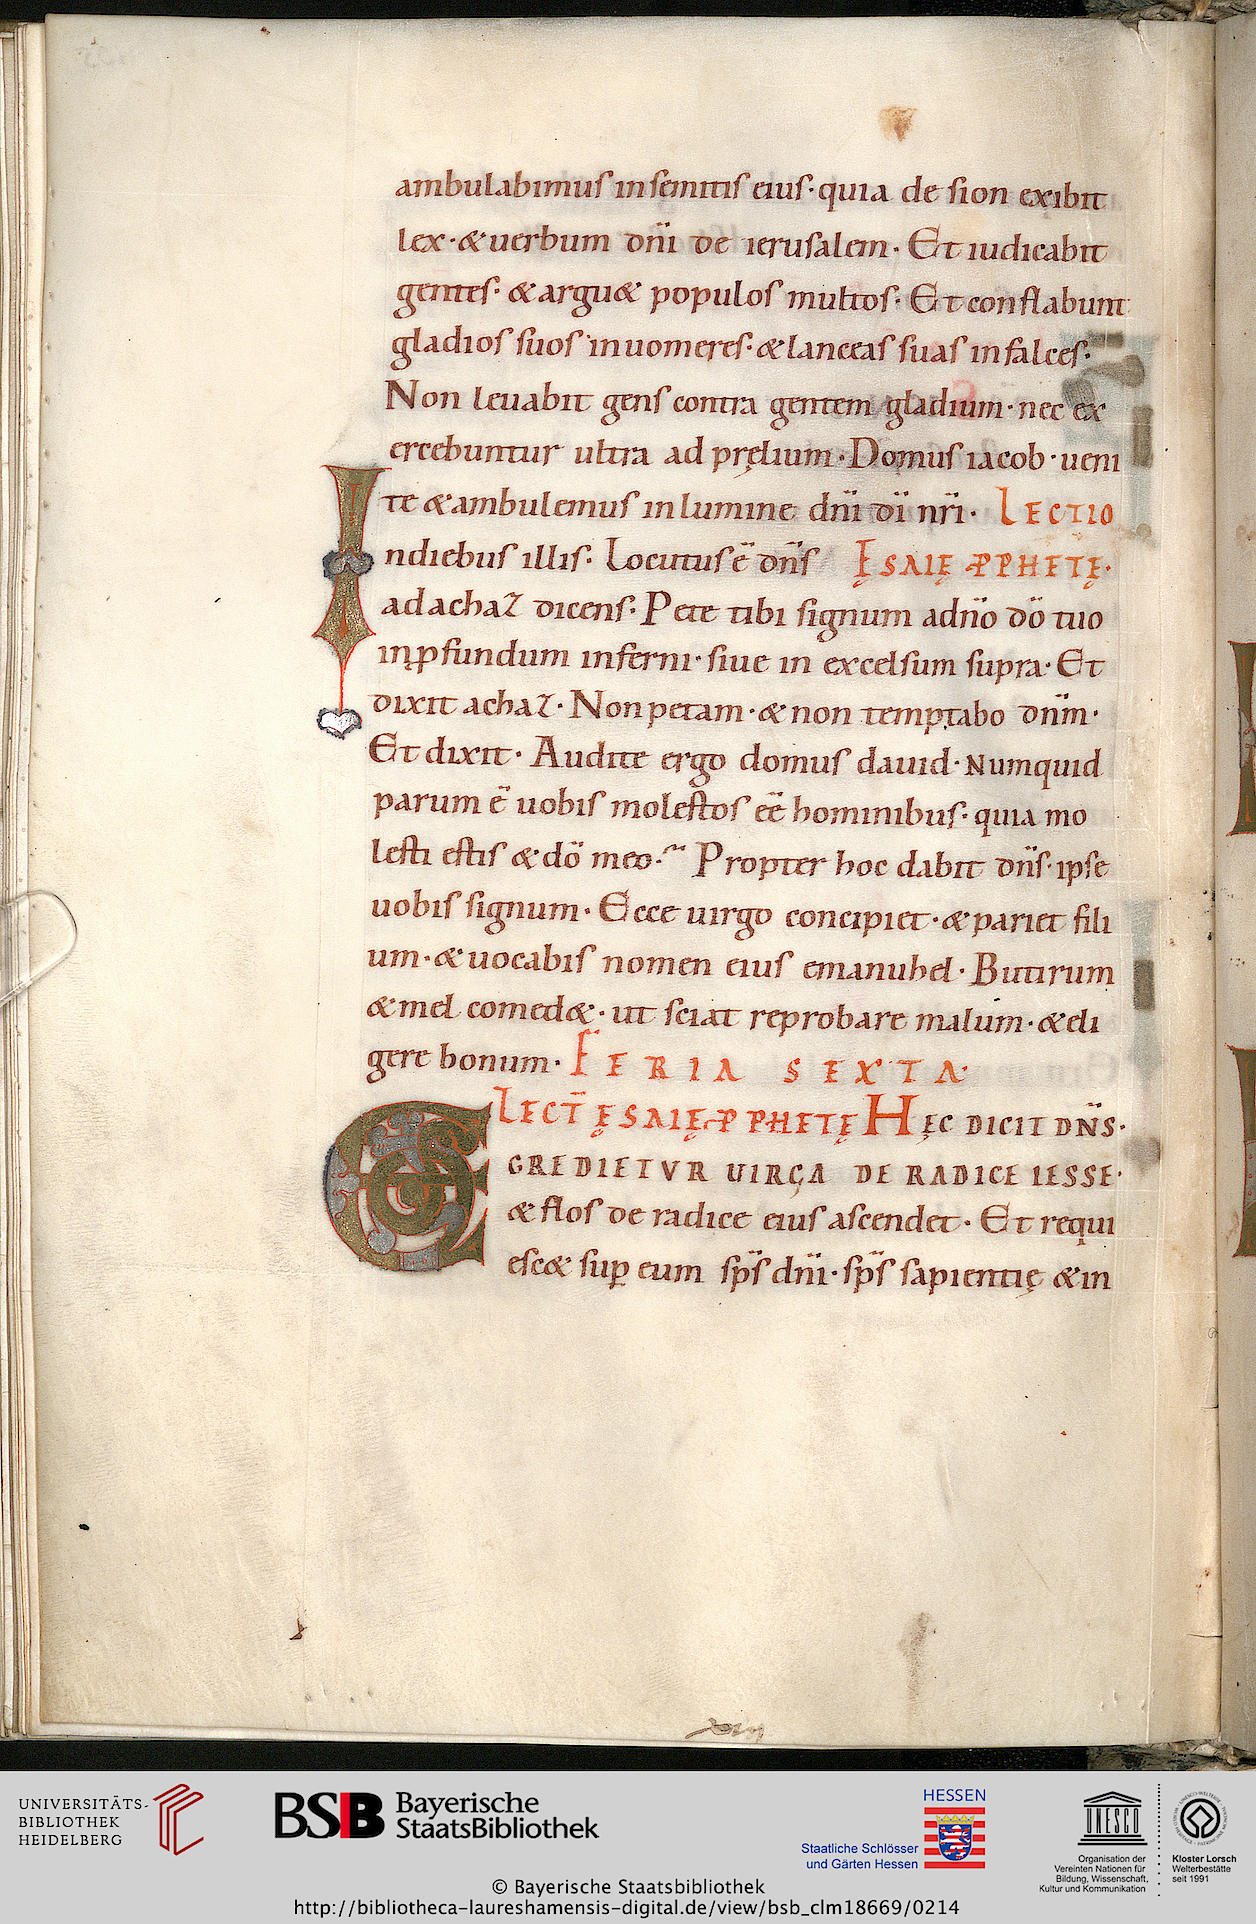 ambulabimus in semitis eius · quia de sion exibit
lex · & uerbum dn̄i de ierusalem · Et iudicabit
gentes · & argu& populos multos · Et conflabunt
gladios suos in uomeres · & lanceas suas in falces ·
Non leuabit gens contra gentem gladium · nec ex
ercebuntur ultra ad pręlium · Domus iacob · ueni
te & ambulemus in lumine dn̄i dī nr̄i · LECTIO
In diebus illis · Locutus ē dn̄s ĘSAIĘ ꝓPHETĘ ·
ad achaz dicens · Pete tibi signum a dn̄o dō tuo
in ꝓfundum inferni · siue in excelsum supra · Et
dixit achaz · Non petam · & non temptabo dn̄m ·
Et dixit · Audite ergo domus dauid · Numquid
parum ē uobis molestos eē hominibus · quia mo
lesti estis & dō meo · Propter hoc dabit dn̄s · ipse
uobis signum · Ecce uirgo concipiet · & pariet fili
um · & uocabis nomen eius emanuhel · Butirum
& mel comed& · ut sciat reprobare malum · & eli
gere bonum · FERIA SEXTA ·
LECT̄ ĘSAIĘ ꝓPHETĘ HĘC DICIT DN̄S ·
EGREDIETVR UIRGA DE RADICE IESSE ·
& flos de radice eius ascendet · Et requi
esc& sup̱ eum sp̄s dn̄i · sp̄s sapientię & in
UNIVERSITÄTS-
BIBLIOTHEK
HEIDELBERG
BSB Bayerische
StaatsBibliothek
HESSEN
Staatliche Schlösser
und Gärten Hessen
UNESCO
Organisation der
Vereinten Nationen für
Bildung, Wissenschaft,
Kultur und Kommunikation
Kloster Lorsch
Welterbestätte
seit 1991
© Bayerische Staatsbibliothek
http://bibliotheca-laureshamensis-digital.de/view/bsb_clm18669/0214